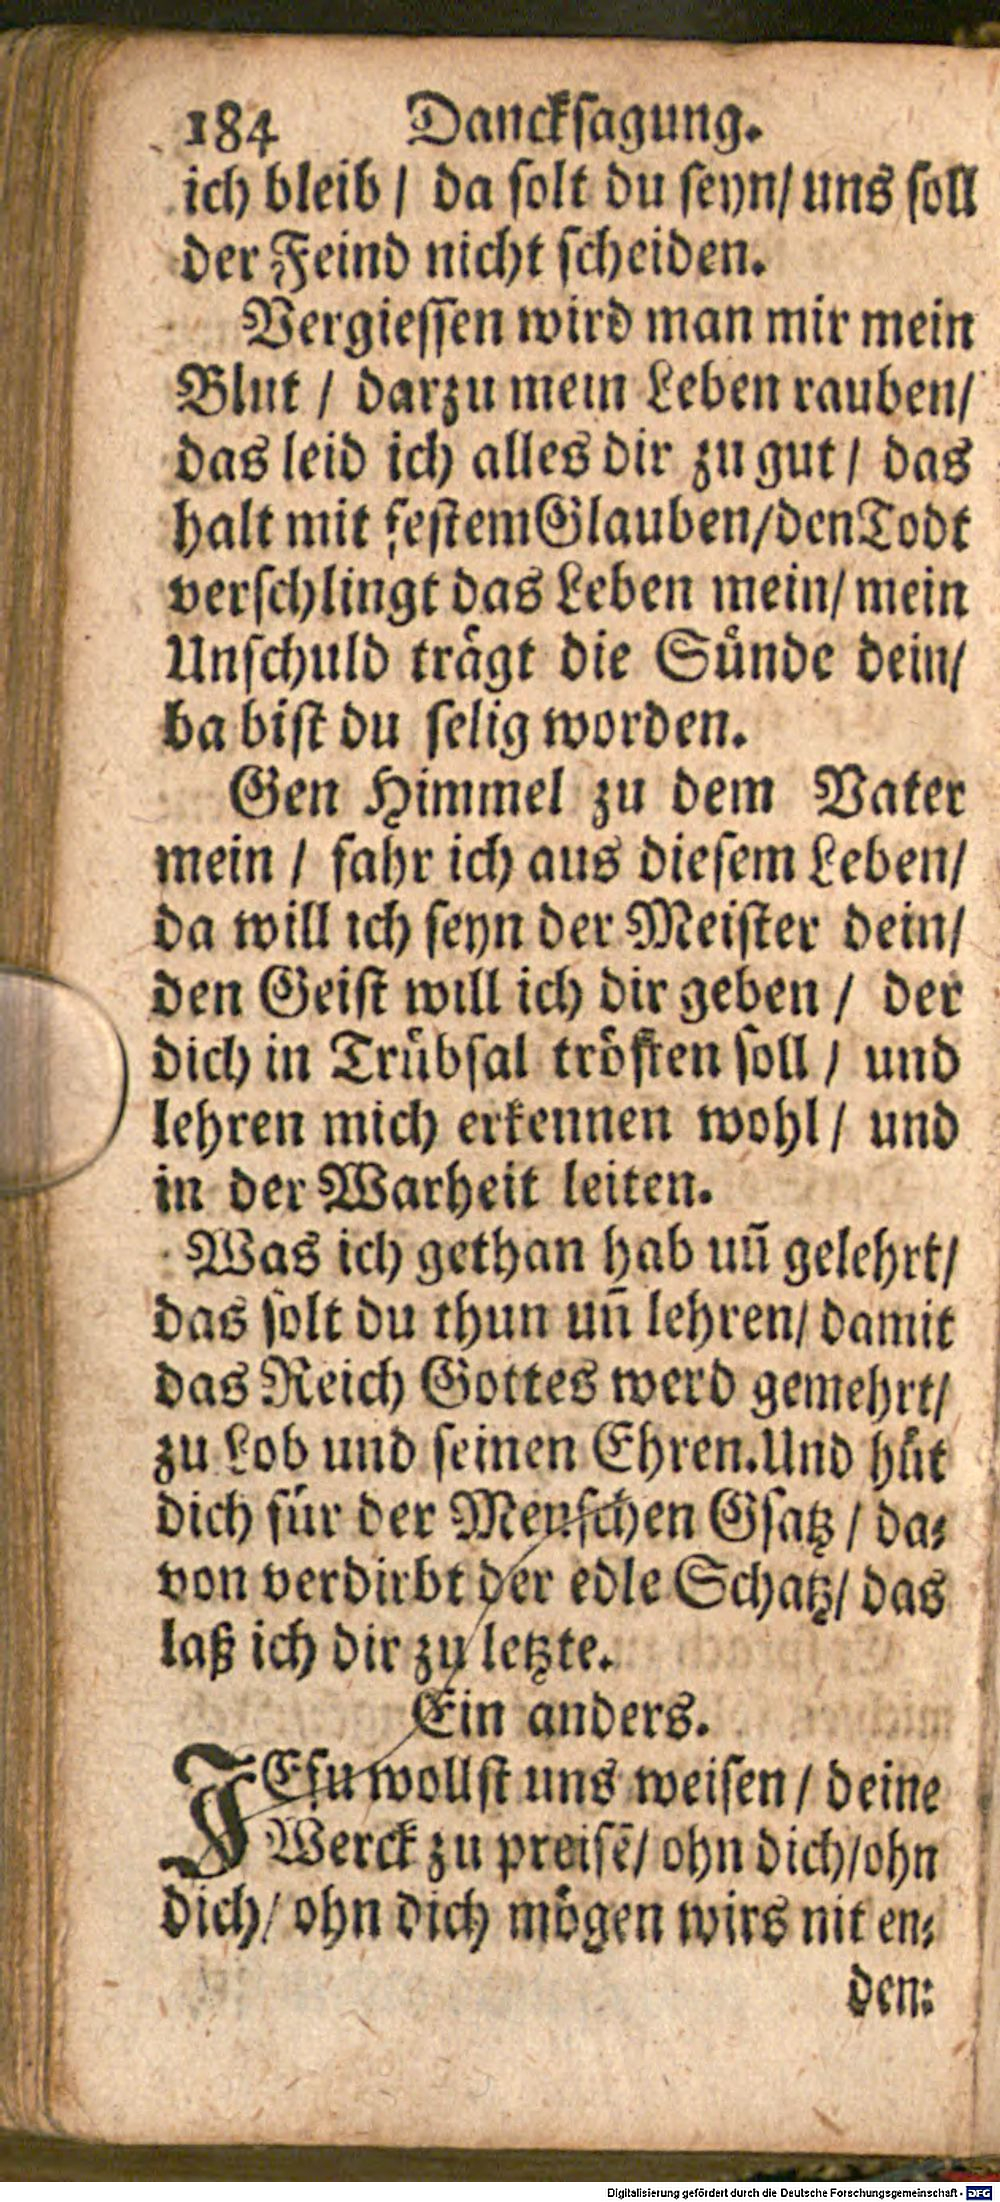 184 Danckſagung.
ich bleib / da ſolt du ſeyn/ uns ſoll
der Feind nicht ſcheiden.
Vergieſſen wird man mir mein
Blut / darzu mein Leben rauben/
das leid ich alles dir zu gut / das
halt mit feſtem Glauben/den Todt
verſchlingt das Leben mein/ mein
Unſchuld traͤgt die Suͤnde dein/
ba biſt du ſelig worden.
Gen Himmel zu dem Vater
mein / fahr ich aus dieſem Leben/
da will ich ſeyn der Meiſter dein/
den Geiſt will ich dir geben / der
dich in Truͤbſal troͤſten ſoll / und
lehren mich erkennen wohl / und
in der Warheit leiten.
Was ich gethan hab uñ gelehrt/
das ſolt du thun uñ lehren/ damit
das Reich Gottes werd gemehrt/
zu Lob und ſeinen Ehren. Und huͤt
dich fuͤr der Menſchen Gſatz / da⸗
von verdirbt der edle Schatz/ das
laß ich dir zu letzte.
Ein anders.
JEſu wollſt uns weiſen / deine
Werck zu preiſē/ ohn dich/ohn
dich/ ohn dich moͤgen wirs nit en⸗
den:
Digitalisierung gefördert durch die Deutsche Forschungsgemeinschaft - DFG